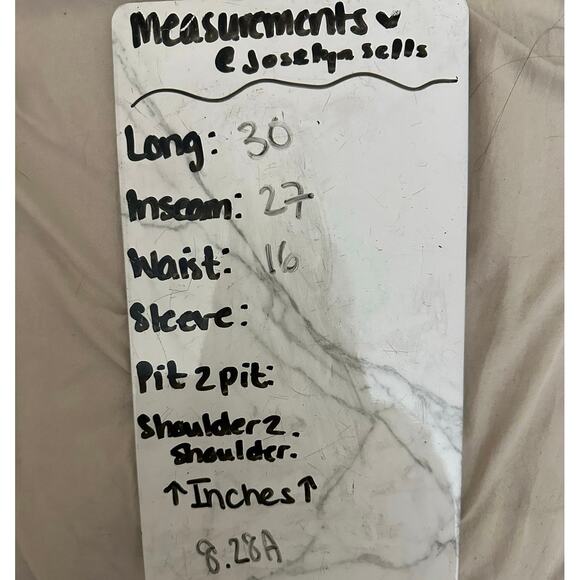 Measurements
@Joselynsells
Long: 30
Inseam: 27
Waist: 16
Sleeve:
Pit 2 pit:
Shoulder 2.
Shoulder.
↑Inches↑
8.28A